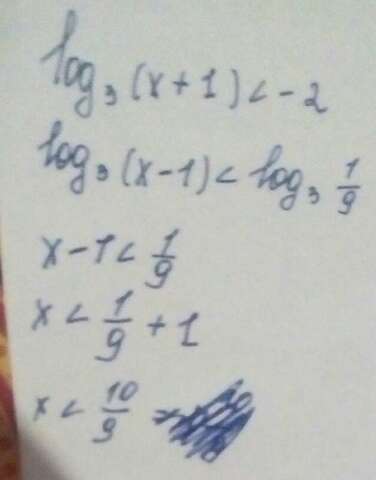 log₃(x+1)<-2
log₃(x-1)<log₃ 1/9
x-1<1/9
x<1/9+1
x<10/9